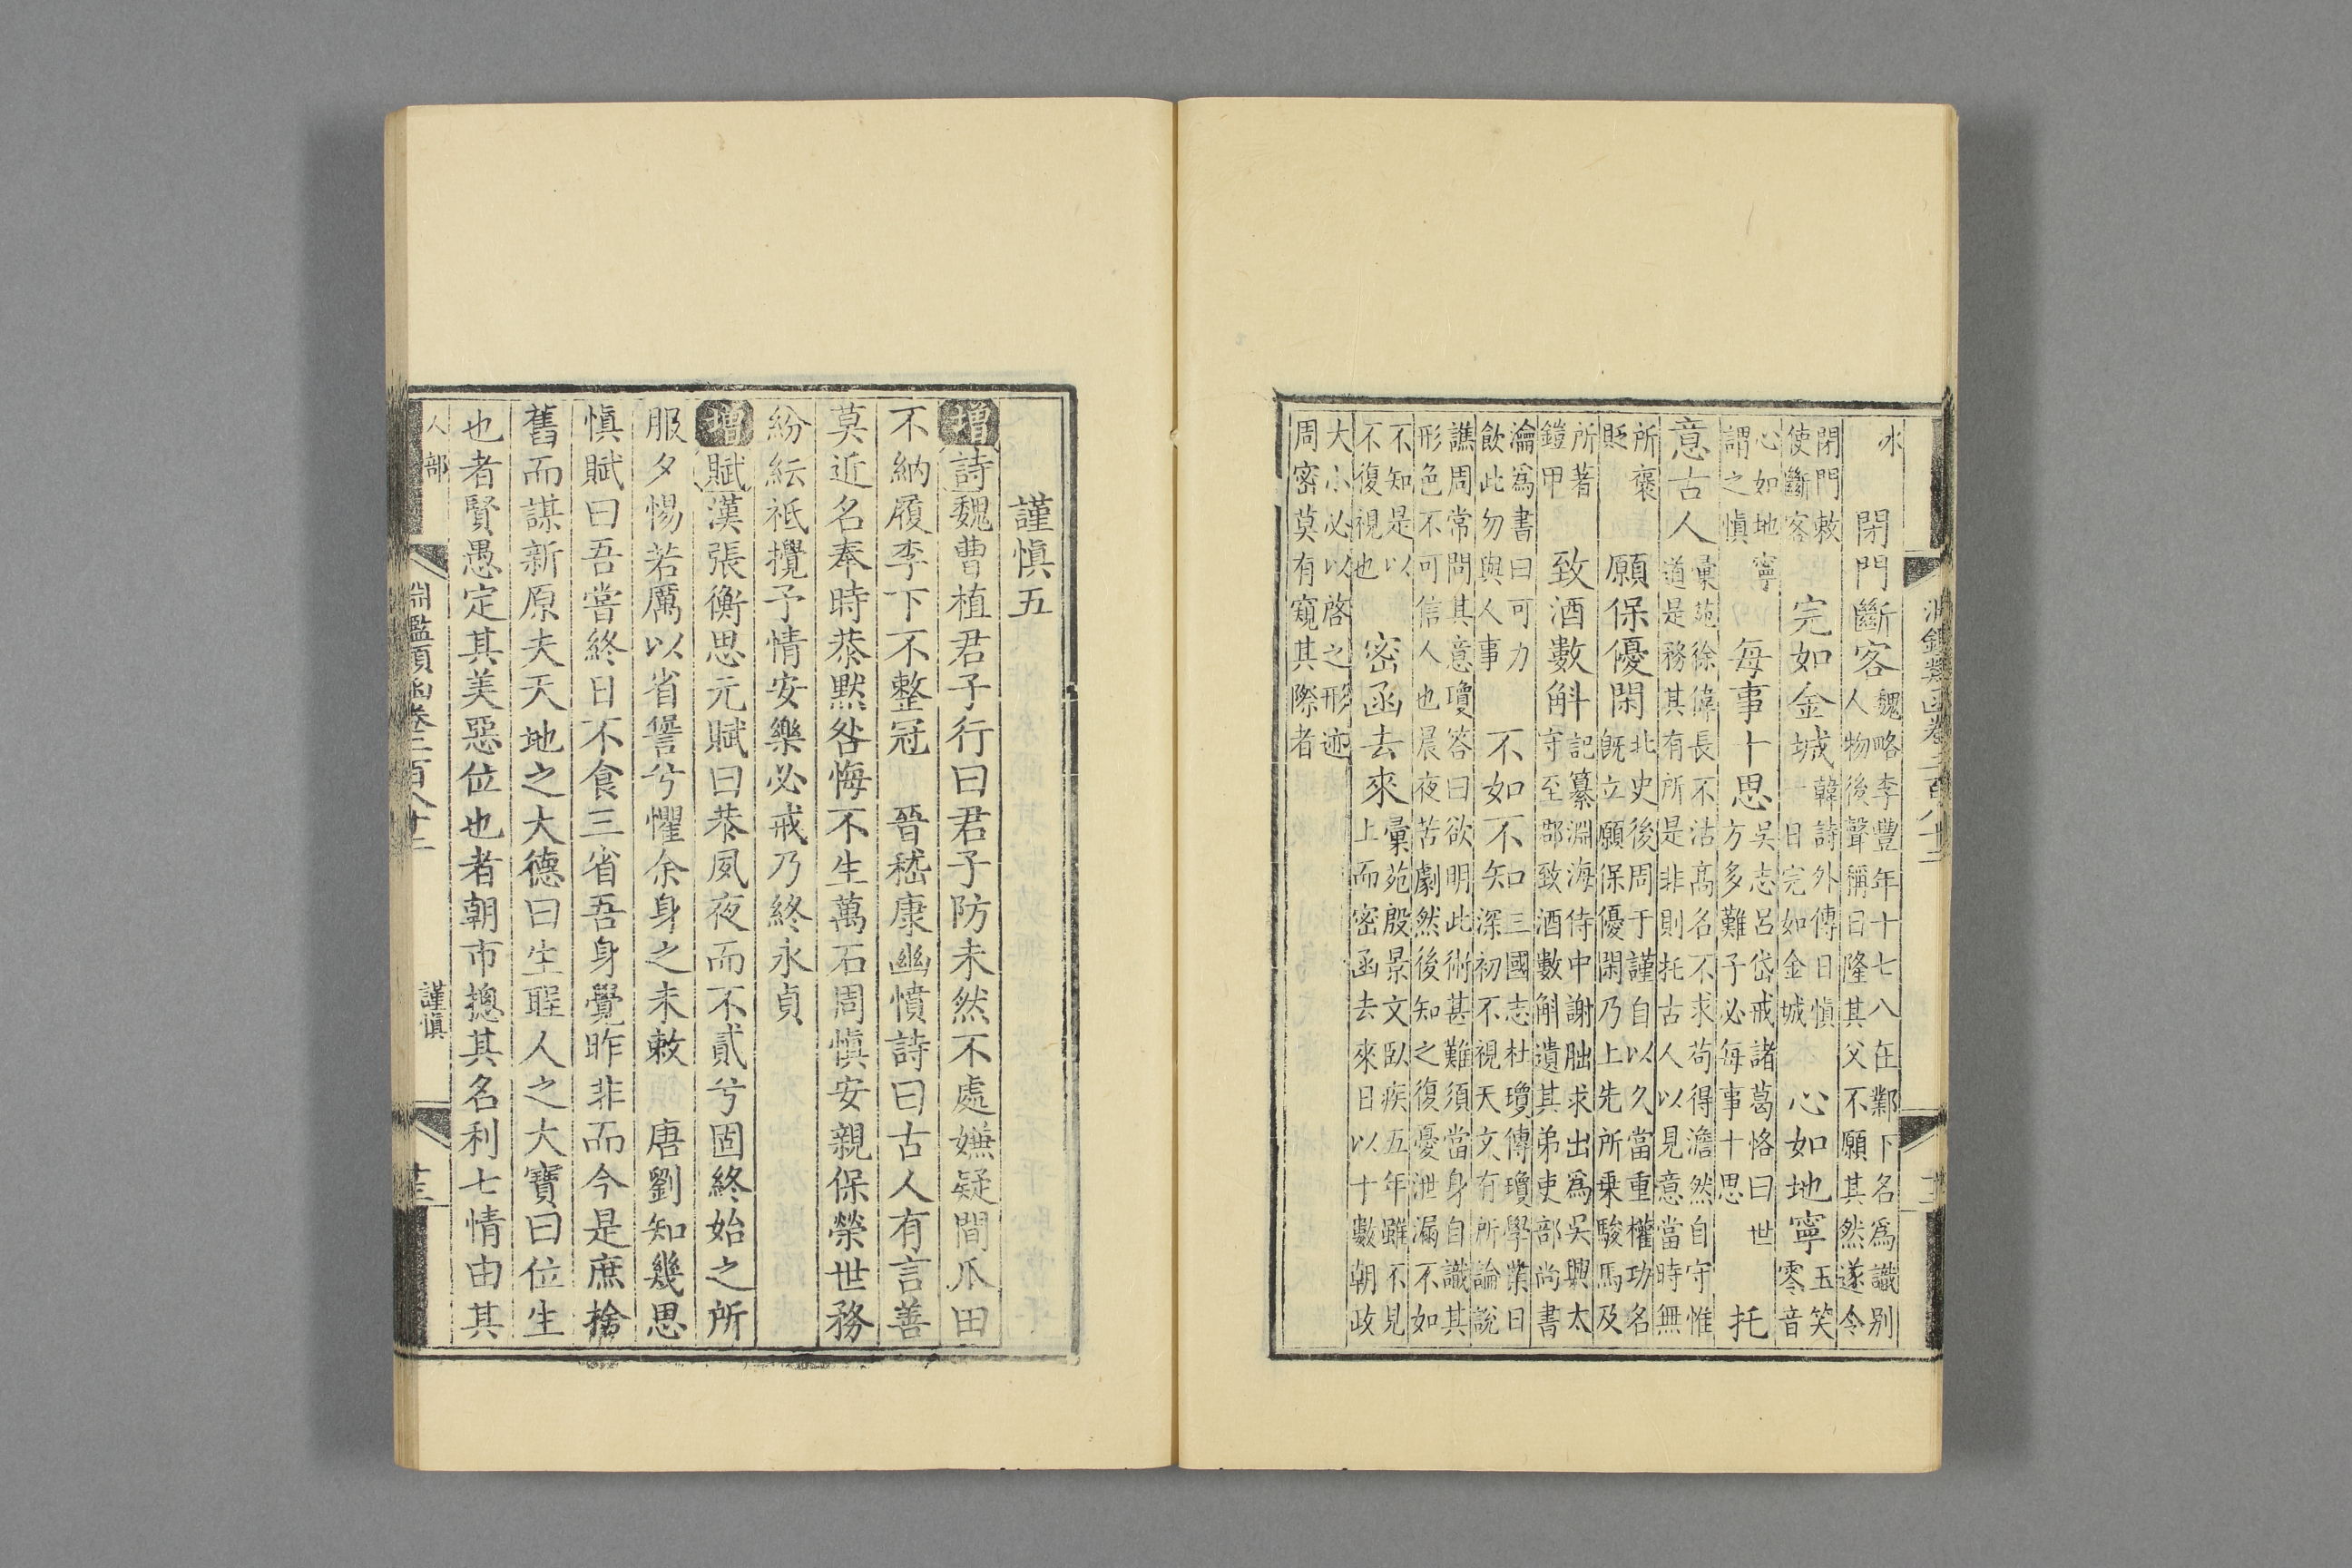 淵鑑類函卷二百八十二
冰
閉門斷客
魏略李豐年十七八在鄴下名為識别
人物後聲稱日隆其父不願其然遂令
閉門敕
使斷客
完如金城
韓詩外傳曰慎
日完如金城
心如地寧
玉笑
零音
心如地寧
謂之慎
每事十思
吳志呂岱戒諸葛恪曰世
方多難子必每事十思
托
意古人
彙苑徐偉長不沽髙名不求苟得澹然自守惟
道是務其有所是非則托古人以見意當時無
所褒
貶
願保優閑
北史後周于謹自以久當重權功名
既立願保優閑乃上先所乗駿馬及
所著
鎧甲
致酒數斛
記纂淵海侍中謝朏求出為吳興太
守至郡致酒數斛遺其弟吏部尚書
瀹為書曰可力
飲此勿與人事
不如不知
三國志杜瓊傳瓊學業日
深初不視天文有所論說
譙周常問其意瓊答曰欲明此術甚難須當身自識其
形色不可信人也晨夜苦劇然後知之復憂泄漏不如
不知是以
不復視也
密函去來
彙苑殷景文臥疾五年雖不見
上而密函去來日以十數朝政
大小必以啓之形迹
周密莫有窺其際者
謹慎五
增詩魏曹植君子行曰君子防未然不處嫌疑間瓜田
不納履李下不整冠　晉嵇康幽憤詩曰古人有言善
莫近名奉時恭默咎悔不生萬石周慎安親保榮世務
紛紜祇攪予情安樂必戒乃終永貞
增賦漢張衡思元賦曰恭夙夜而不貳兮固終始之所
服夕惕若厲以省諐兮懼余身之未敕　唐劉知幾思
慎賦曰吾嘗終日不食三省吾身覺昨非而今是庶捨
舊而謀新原夫天地之大德曰生聖人之大寶曰位生
也者賢愚定其美惡位也者朝市摠其名利七情由其
人部
淵鑑類函卷二百八十二
謹慎
十三